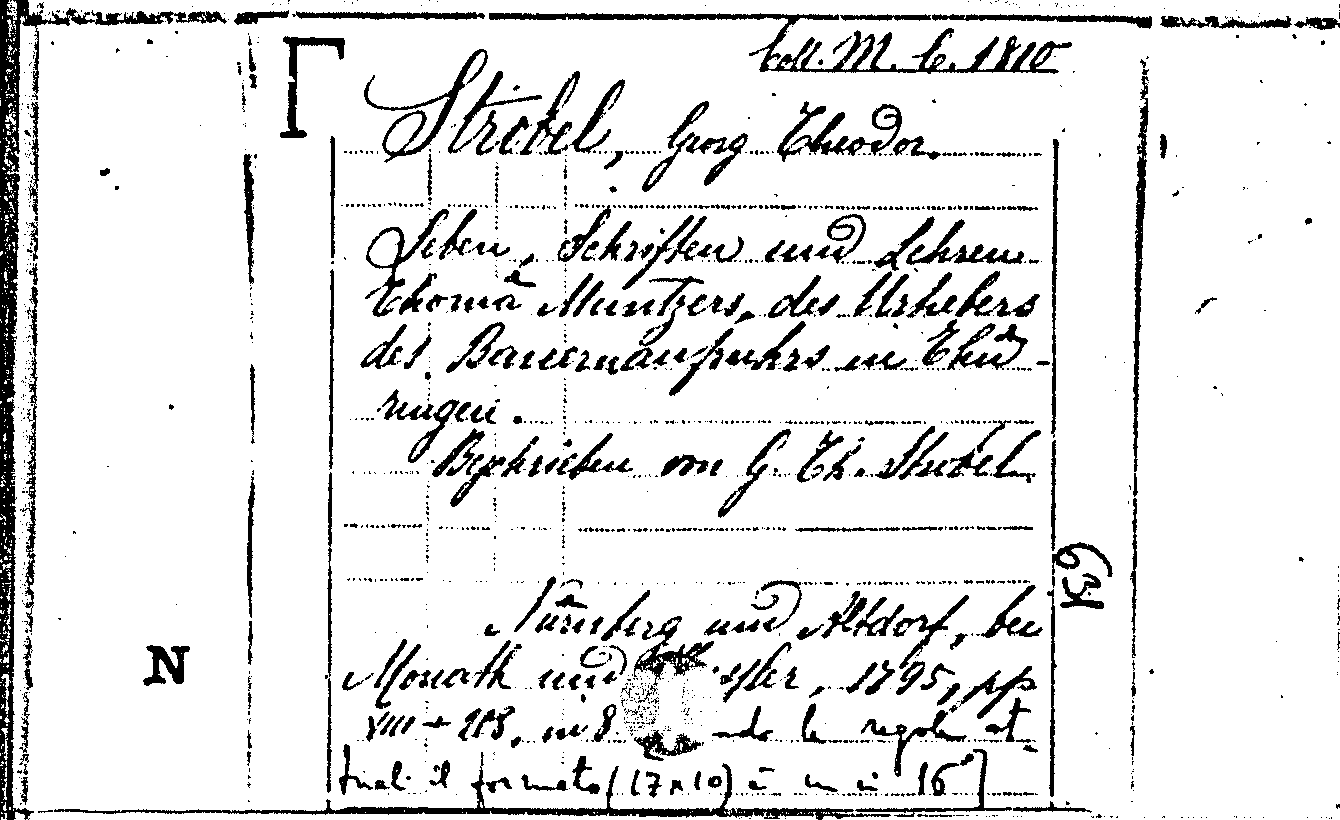 Coll. M. C. 1810
Strobel, Georg Theodor.
Leben, Schriften und Lehren
Thomä Muntzers, des Urhebers
des Bauernaufruhrs in Thü-
ringen.
Beschrieben von G. Th. Strobel
Nürnberg und Altdorf, bei
Monath und ssler, 1795, pp
VIII + 208, in 8 ndo le regole at-
tuali il formato (17x10) è un in 16°]
K9
N